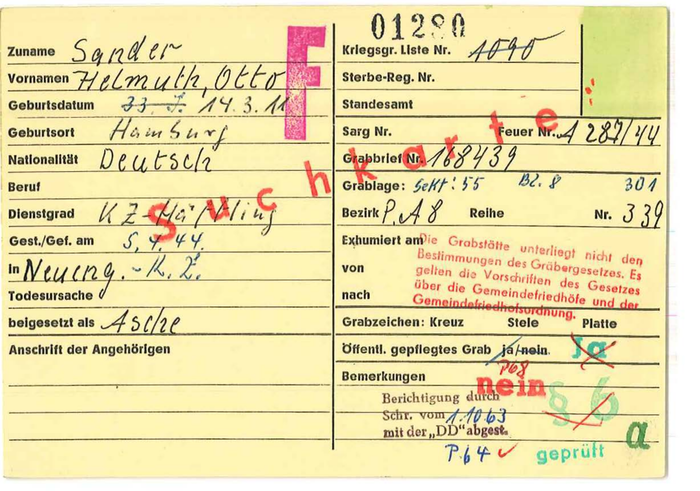 01280
Zuname Sander
Vornamen Helmuth, Otto
Geburtsdatum 33. J. 14.3.11
Geburtsort Hamburg
Nationalität Deutsch
Beruf
Dienstgrad KZ-Häftling
Gest./Gef. am 5.4.44.
in Neueng.-K.Z.
Todesursache
beigesetzt als Asche
Anschrift der Angehörigen
F
Suchkarte
Kriegsgr. Liste Nr. 1090
Sterbe-Reg. Nr.
Standesamt
Sarg Nr. Feuer Nr. A 287/44
Grabbrief Nr. 168439
Grablage: Sekt: 55 Bz. 8 301
Bezirk P.A8 Reihe Nr. 339
Exhumiert am
von
nach
Die Grabstätte unterliegt nicht den
Bestimmungen des Gräbergesetzes. Es
gelten die Vorschriften des Gesetzes
über die Gemeindefriedhöfe und der
Gemeindefriedhofsordnung.
Grabzeichen: Kreuz Stele Platte
Öffentl. gepflegtes Grab ja/nein. ja
P68
Bemerkungen nein § 6
Berichtigung durch
Schr. vom 1.10.63
mit der „DD" abgest.
P.64 geprüft a